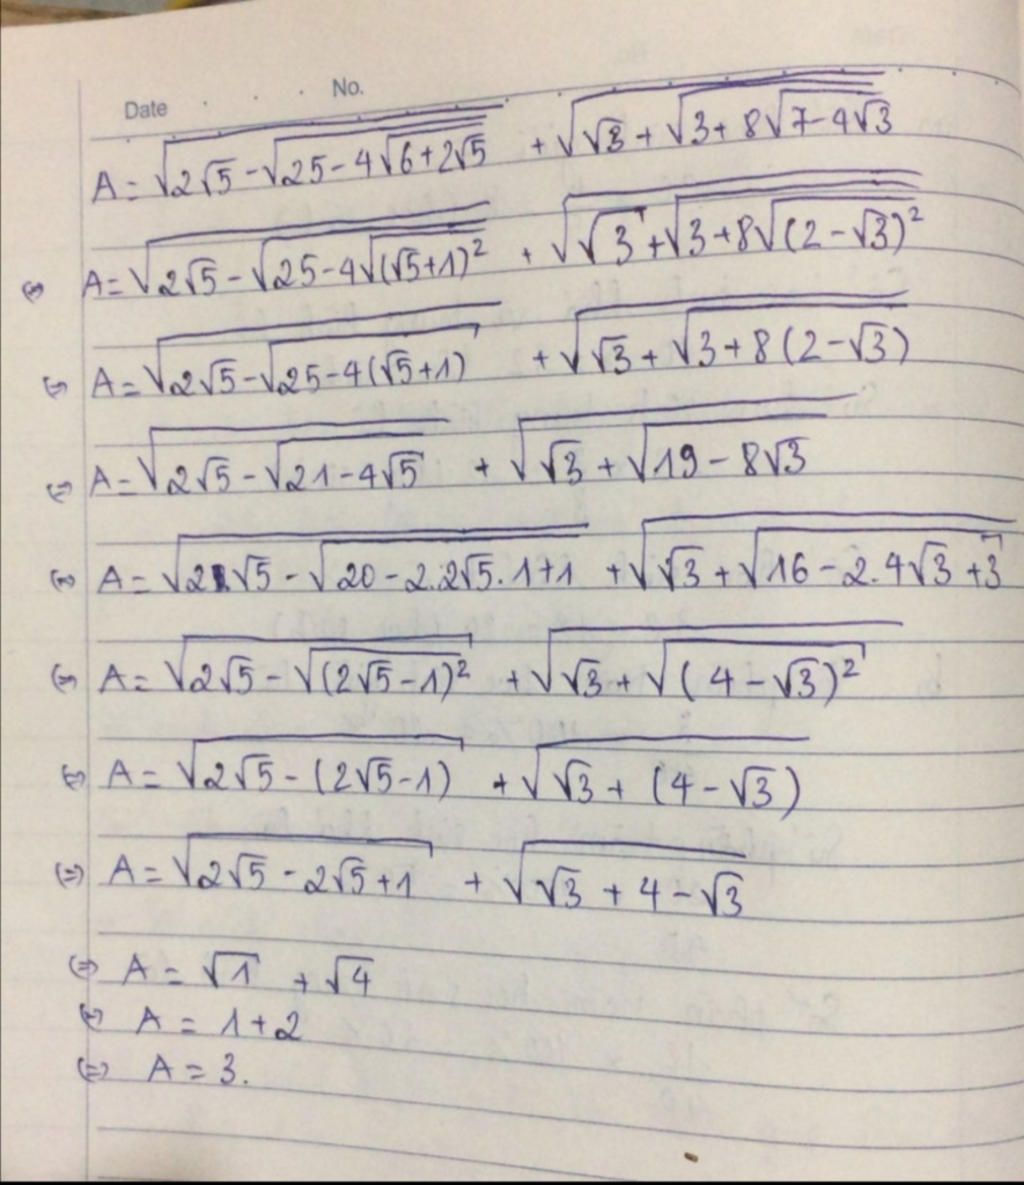 Date No.
A = √(2√5 - √(25 - 4√(6+2√5))) + √(√3 + √(3 + 8√(7-4√3)))
(=) A = √(2√5 - √(25 - 4√((√5+1)²))) + √(√3 + √(3 + 8√((2-√3)²)))
(=) A = √(2√5 - √(25 - 4(√5+1))) + √(√3 + √(3 + 8(2-√3)))
(=) A = √(2√5 - √(21 - 4√5)) + √(√3 + √(19 - 8√3))
(=) A = √(2√5 - √(20 - 2.2√5.1+1)) + √(√3 + √(16 - 2.4√3 + 3))
(=) A = √(2√5 - √((2√5-1)²)) + √(√3 + √((4-√3)²))
(=) A = √(2√5 - (2√5-1)) + √(√3 + (4-√3))
(=) A = √(2√5 - 2√5 + 1) + √(√3 + 4 - √3)
(=) A = √1 + √4
(=) A = 1+2
(=) A = 3.